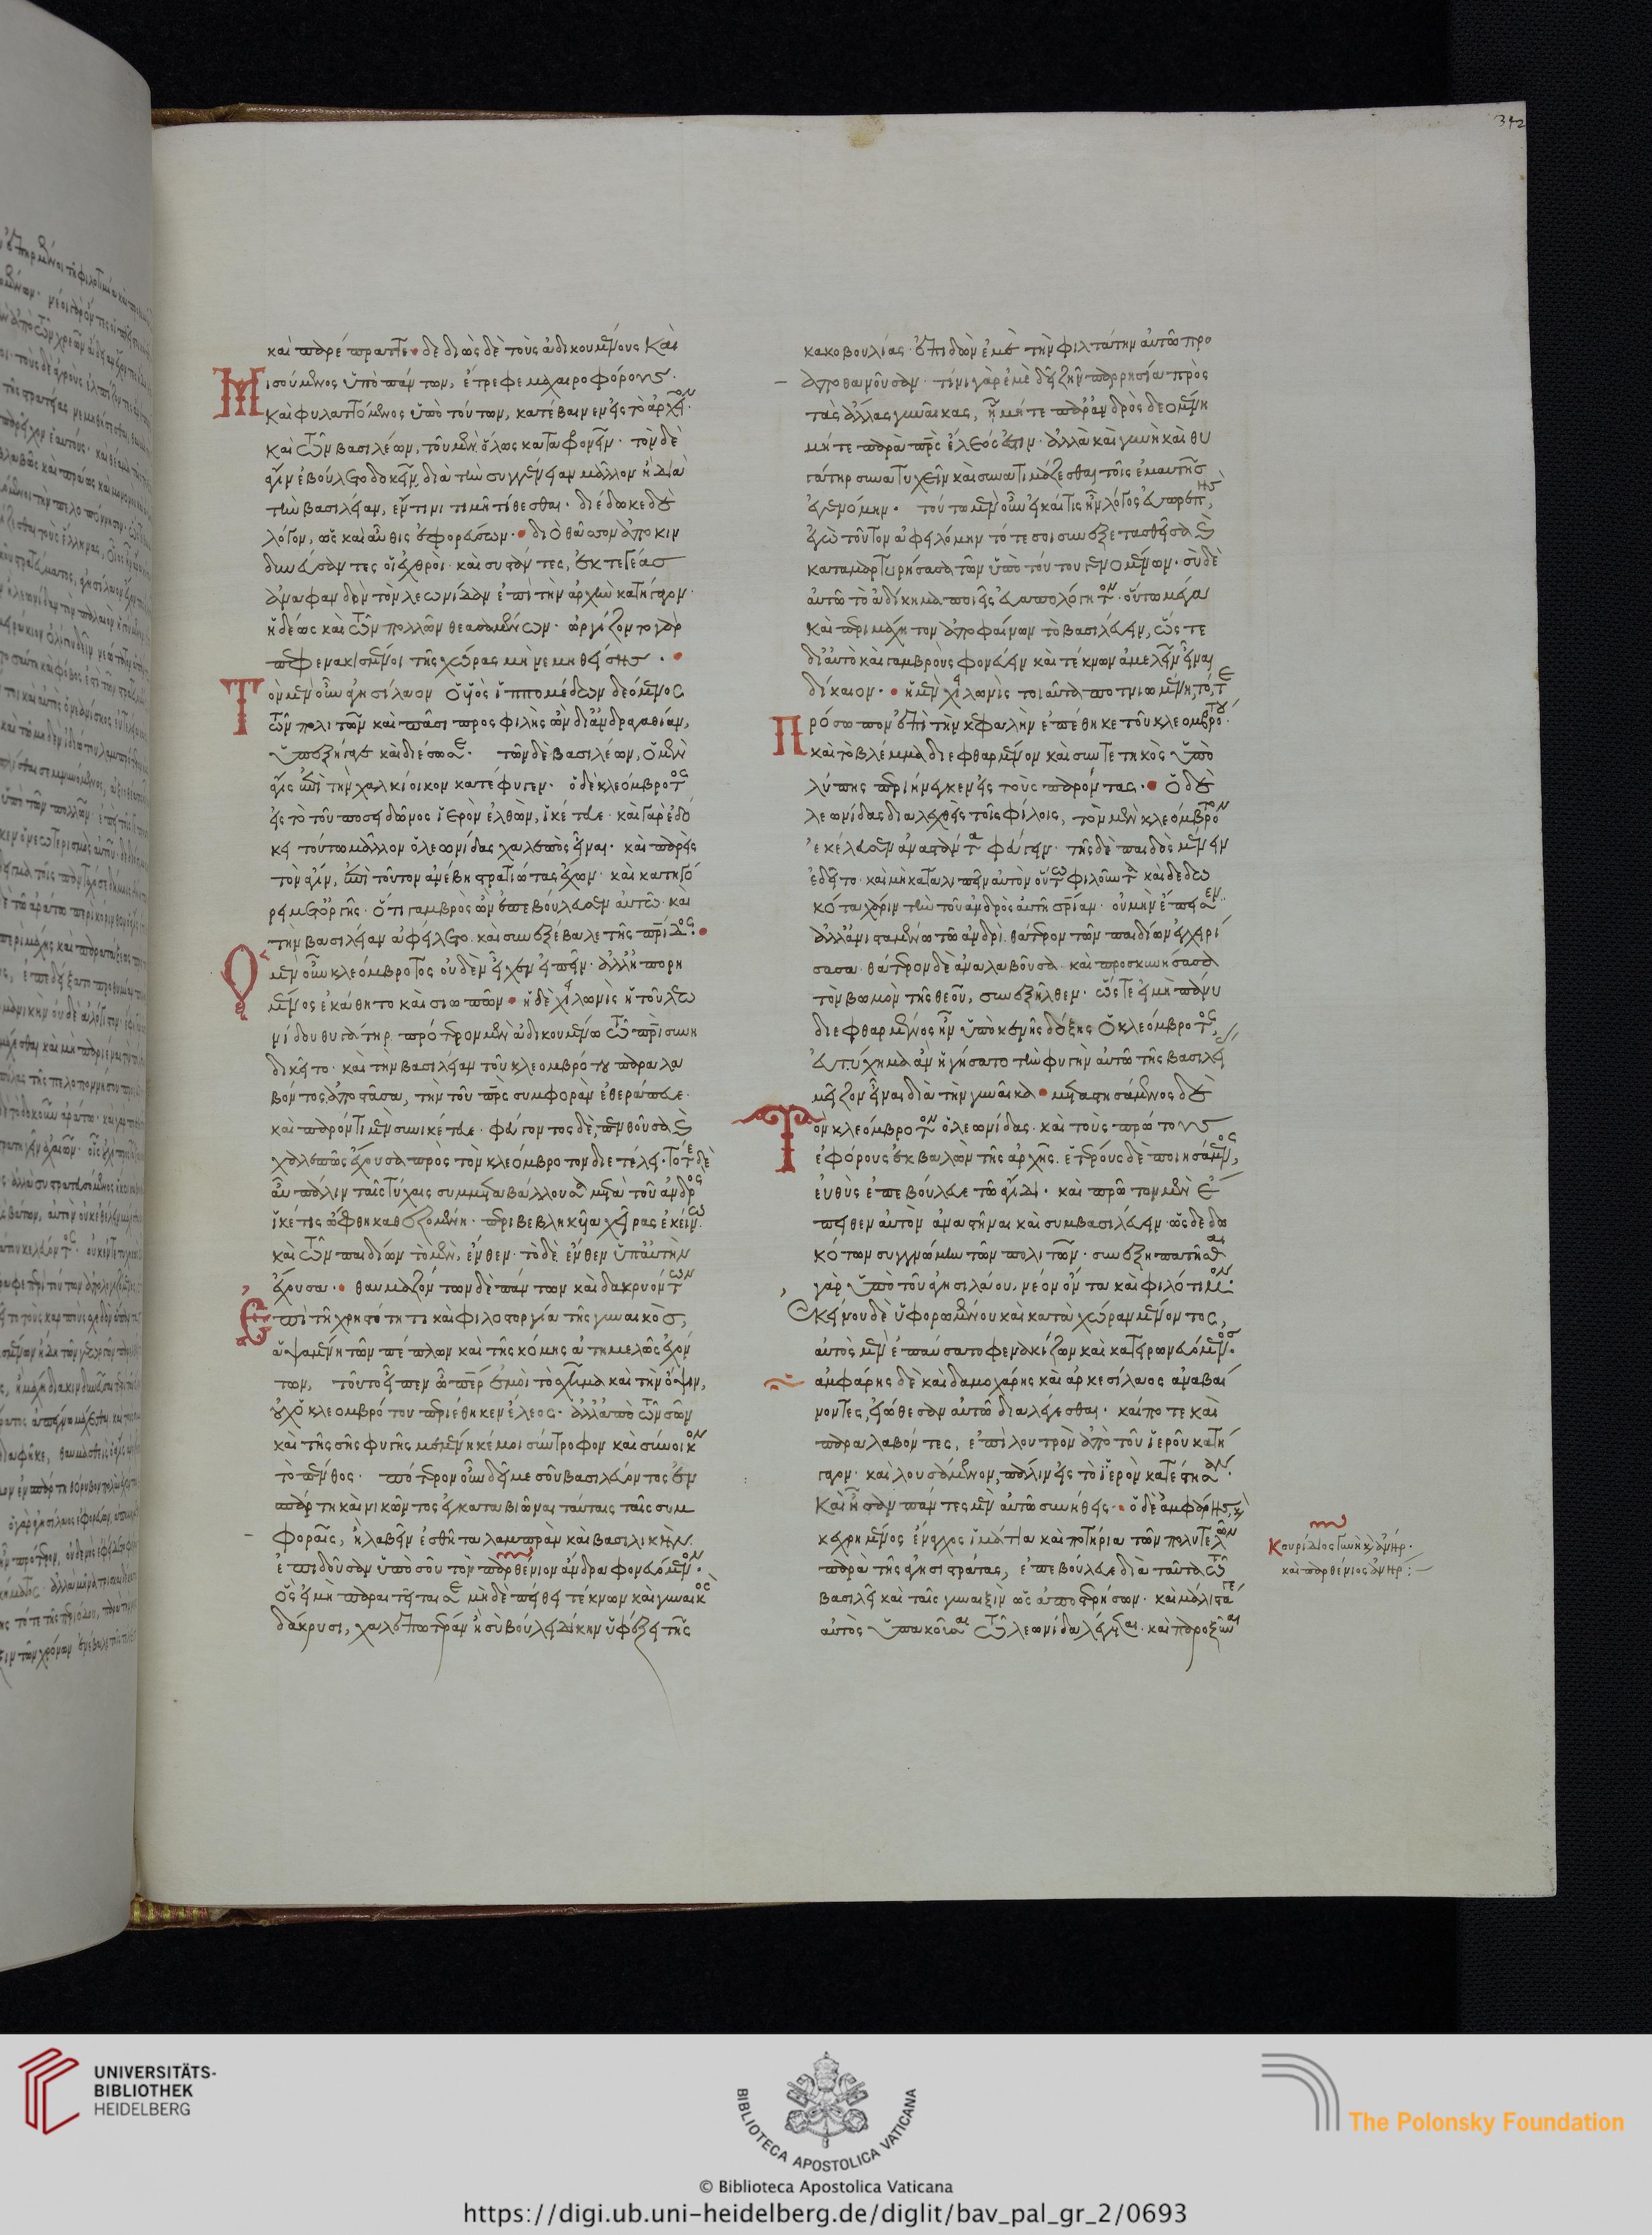 342
καὶ παρέπραττε· δεδιὼς δὲ τοὺς ἀδικουμένους καὶ
μισούμενος ὑπὸ πάντων, ἔτρεφε μαχαιροφόρους·
καὶ φυλαττόμενος ὑπὸ τούτων, κατέβαινεν εἰς τὸ ἀρχεῖον·
καὶ τῶν βασιλέων, τοῦ μὲν ὅλως καταφρονεῖν· τὸν δὲ
ἆγιν ἐβούλετο δοκεῖν, διὰ τὴν συγγένειαν μᾶλλον ἢ διὰ
τὴν βασιλείαν, ἔν τινι τιμῆ τίθεσθαι· διέδωκε δὲ
λόγον, ὡς καὶ αὖθις ἐφορεύσων· διὸ θᾶττον ἀποκιν
δυνεύσαντες οἱ ἐχθροὶ καὶ συστάντες, ἐκ τεγέας
ἀναφανδὸν τὸν λεωνίδαν ἐπὶ τὴν ἀρχὴν κατήγαγον·
ἡδέως καὶ τῶν πολλῶν θεασαμένων· ὠργίζοντο γὰρ
πεφενακισμένοι τῆς χώρας μὴ νεμηθείσης·
Τὸν μὲν οὖν ἀγησίλαον ὁ υἱὸς ἱππομέδων δεόμενος
τῶν πολιτῶν καὶ πᾶσι προσφιλὴς ὢν δι' ἀνδραγαθίαν,
ὑπεξήγαγε καὶ διέσωσε· τῶν δὲ βασιλέων, ὁ μὲν
ἆγις ἐπὶ τὴν χαλκίοικον κατέφυγεν· ὁ δὲ κλεόμβροτος
εἰς τὸ τοῦ ποσειδῶνος ἱερὸν ἐλθὼν, ἱκέτευε· καὶ γὰρ ἐδό
κει τούτω μᾶλλον ὁ λεωνίδας χαλεπὸς εἶναι· καὶ παρεὶς
τὸν ἆγιν, ἐπὶ τοῦτον ἀνέβη στρατιώτας ἔχων· καὶ κατηγό
ρει μετ' ὀργῆς· ὅτι γαμβρὸς ὢν ἐπεβούλευσεν αὐτῶ· καὶ
τὴν βασιλείαν ἀφείλετο· καὶ συνεξέβαλε τῆς πατρίδος·
Ὁ μὲν οὖν κλεόμβροτος οὐδὲν εἶχεν εἰπεῖν· ἀλλ' ἠπορη
μένος ἐκάθητο καὶ σιωπῶν· ἡ δὲ χειλωνὶς ἡ τοῦ λεω
νίδου θυγάτηρ πρότερον μὲν ἀδικουμένω τῶ πατρὶ συνη
δικεῖτο· καὶ τὴν βασιλείαν τοῦ κλεομβρότου παραλα
βόντος ἀποστᾶσα, τὴν τοῦ πατρὸς συμφορὰν ἐθεράπευε·
καὶ παρόντι μὲν συνικέτευε· φεύγοντος δὲ, πενθοῦσα καὶ
χαλεπῶς ἔχουσα πρὸς τὸν κλεόμβροτον διετέλει· τότε δὲ
αὖ πάλιν ταῖς τύχαις συμμεταβάλλουσα μετὰ τοῦ ἀνδρὸς
ἱκέτις ὤφθη καθεζομένη· περιβεβληκυῖα χεῖρας ἐκείνω·
καὶ τῶν παιδίων τὸ μὲν, ἔνθεν· τὸ δὲ ἔνθεν ὑπ' αὐτὴν
ἔχουσα· θαυμαζόντων δὲ πάντων καὶ δακρυόντων
ἐπὶ τῆ χρηστότητι καὶ φιλοστοργία τῆς γυναικὸς,
ἁψαμένη τῶν πέπλων καὶ τῆς κόμης ἀτημελῶς ἐχόν
των, τοῦτο εἶπεν ὦ πάτερ ἐμοὶ τὸ σχῆμα καὶ τὴν ὄψιν,
οὐχ ὁ κλεομβρότου περιέθηκεν ἔλεος· ἀλλ' ἀπὸ τῶν σῶν
καὶ τῆς σῆς φυγῆς μεμένηκέ μοι σύντροφον καὶ σύνοικον
τὸ πένθος· πότερον οὖν δεῖ με σοῦ βασιλεύοντος ἐν
σπάρτη καὶ νικῶντος ἐγκαταβιῶναι ταύταις ταῖς συμ
φοραῖς, ἢ λαβεῖν ἐσθῆτα λαμπρὰν καὶ βασιλικὴν·
ἐπιδοῦσαν ὑπὸ σοῦ τὸν παρθένιον ἄνδρα φονευόμενον·
ὃς εἰ μὴ παραιτεῖταί σε μηδὲ πείθει τέκνων καὶ γυναικὸς
δάκρυσι, χαλεπωτέραν ἢ σὺ βούλει δίκην ὑφέξει τῆς
κακοβουλίας· ἐπιδὼν ἐμὲ τὴν φιλτάτην αὐτῶ προ
αποθανοῦσαν· τίνι γὰρ ἐμὲ δεῖ ζῆν παρρησία πρὸς
τὰς ἄλλας γυναῖκας, ᾗ μήτε παρ' ἀνδρὸς δεομένη
μήτε παρὰ πατρὸς ἔλεός ἐστιν· ἀλλὰ καὶ γυνὴ καὶ θυ
γάτηρ συνατυχεῖν καὶ συνατιμάζεσθαι τοῖς ἐμαυτῆς
ἐγενόμην· τούτω μὲν οὖν εἰ καί τις ἦν λόγος εὐπρεπὴς,
ἐγὼ τοῦτον ἀφειλόμην τότε σοι συνεξετασθεῖσα καὶ
καταμαρτυρήσασα τῶν ὑπὸ τούτου γενομένων· σὺ δὲ
αὐτῶ τὸ ἀδίκημα ποιεῖς εὐαπολόγητον· οὕτω μέγα
καὶ περιμάχητον ἀποφαίνων τὸ βασιλεύειν, ὥστε
δι' αὐτὸ καὶ γαμβροὺς φονεύειν καὶ τέκνων ἀμελεῖν εἶναι
δίκαιον· ἡ μὲν χειλωνὶς τοιαῦτα ποτνιωμένη, τό, τε
Πρόσωπον ἐπὶ τὴν κεφαλὴν ἐπέθηκε τοῦ κλεομβρότου·
καὶ τὸ βλέμμα διεφθαρμένον καὶ συντετηκὸς ὑπὸ
λύπης περιήνεγκεν εἰς τοὺς παρόντας· ὁ δὲ
λεωνίδας διαλεχθεὶς τοῖς φίλοις, τὸν μὲν κλεόμβροτον
ἐκέλευσεν ἀναστάντα φεύγειν· τῆς δὲ παιδὸς μένειν
ἐδεῖτο· καὶ μὴ καταλιπεῖν αὐτὸν οὕτω φιλοῦντα καὶ δεδω
κότα χάριν τὴν τοῦ ἀνδρὸς αὐτῆ σωτηρίαν· οὐ μὴν ἔπεισεν·
ἀλλ' ἀνισταμένω τῶ ἀνδρὶ θάτερον τῶν παιδίων ἐγχειρί
σασα· θάτερον δὲ ἀναλαβοῦσα· καὶ προσκυνήσασα
τὸν βωμὸν τῆς θεοῦ, συνεξῆλθεν· ὥστε εἰ μὴ πάνυ
διεφθαρμένος ἦν ὑπὸ κενῆς δόξης ὁ κλεόμβροτος,
εὐτύχημα ἂν ἡγήσατο τὴν φυγὴν αὐτῶ τῆς βασιλεί
μεῖζον εἶναι διὰ τὴν γυναῖκα· μεταστησάμενος δὲ
Τὸν κλεόμβροτον ὁ λεωνίδας· καὶ τοὺς πρώτους
ἐφόρους ἐκβαλὼν τῆς ἀρχῆς· ἑτέρους δὲ ποιησάμενος,
εὐθὺς ἐπεβούλευε τῶ ἄγιδι· καὶ πρῶτον μὲν ἔ
πειθεν αὐτὸν ἀναστῆναι καὶ συμβασιλεύειν· ὡς δεδω
κότων συγγνώμην τῶν πολιτῶν· συνεξηπατῆσθαι
γὰρ ὑπὸ τοῦ ἀγησιλάου, νέον ὄντα καὶ φιλότιμον·
Ἐκείνου δὲ ὑφορωμένου καὶ κατὰ χώραν μένοντος,
αὐτὸς μὲν ἐπαύσατο φενακίζων καὶ κατειρωνευόμενος·
ἀμφάρης δὲ καὶ δαμοχάρης καὶ ἀρκεσίλαος ἀναβαί
νοντες, εἰώθεσαν αὐτῶ διαλέγεσθαι· καί ποτε καὶ
παραλαβόντες, ἐπὶ λουτρὸν ἀπὸ τοῦ ἱεροῦ κατή
γαγον· καὶ λουσάμενον, πάλιν εἰς τὸ ἱερὸν κατέστησαν·
καὶ ἦσαν πάντες μὲν αὐτῶ συνήθεις· ὁ δὲ ἀμφάρης, καὶ
κεχρημένος ἔναγχος ἱμάτια καὶ ποτήρια τῶν πολυτελῶν
παρὰ τῆς ἀγησιστράτας, ἐπεβούλευε διὰ ταῦτα τῶ
βασιλεῖ καὶ ταῖς γυναιξὶν ὡς ἀποστερήσων· καὶ μάλιστά γε
αὐτὸς ὑπακοῦσαι τῶ λεωνίδα λέγεται· καὶ παροξῦναι
Κουρίδιος γυνὴ καὶ ἀνήρ·
καὶ παρθένιος ἀνήρ:
UNIVERSITÄTS-
BIBLIOTHEK
HEIDELBERG
BIBLIOTECA APOSTOLICA VATICANA
The Polonsky Foundation
© Biblioteca Apostolica Vaticana
https://digi.ub.uni-heidelberg.de/diglit/bav_pal_gr_2/0693